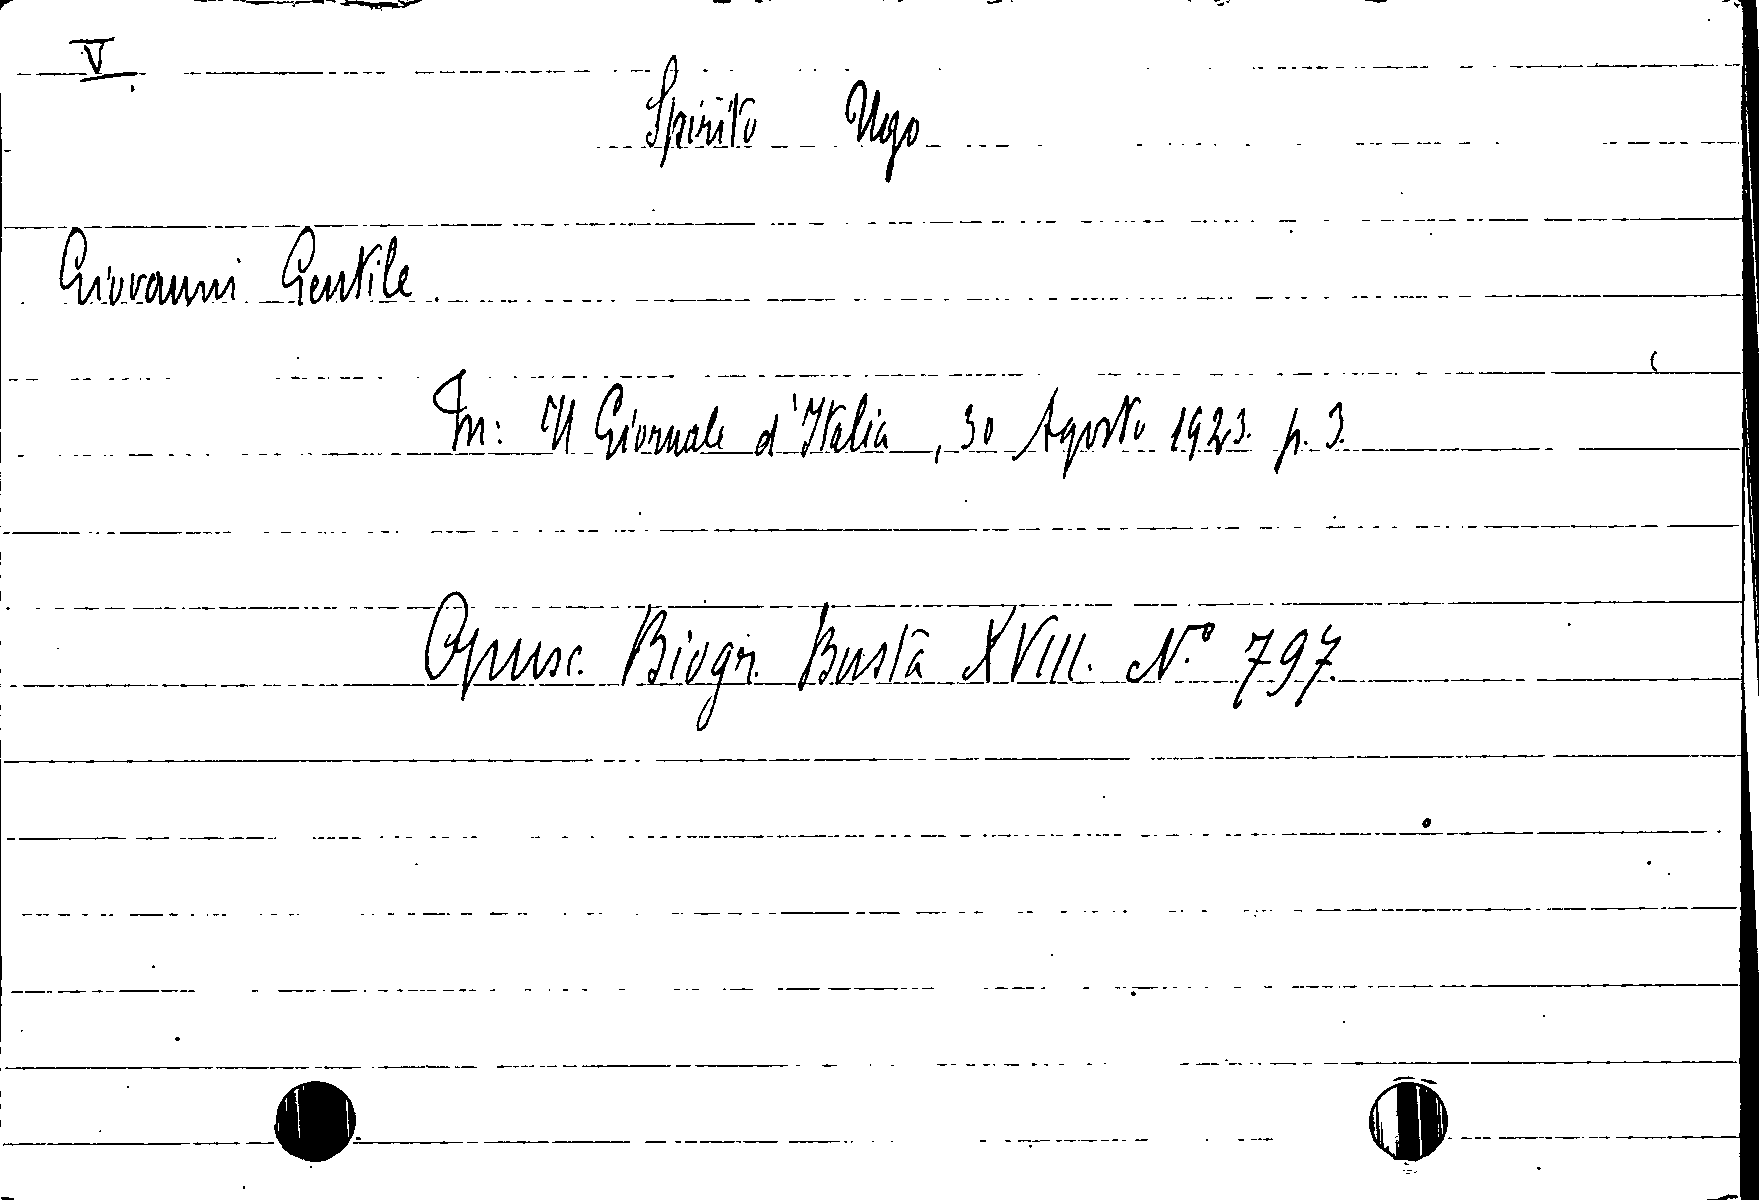 V.
Spirito Ugo
Giovanni Gentile.
In: Il Giornale d'Italia, 30 Agosto 1923. p. 3.
Opusc. Biogr. Busta XVIII. N.º 797.